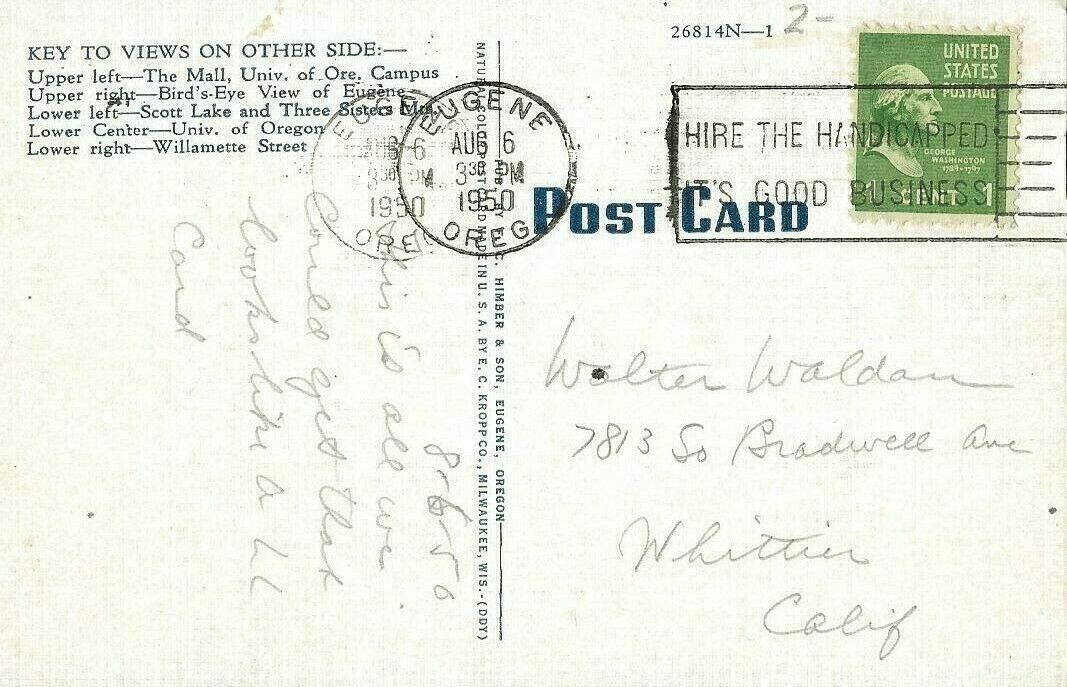 26814N—1 2-
KEY TO VIEWS ON OTHER SIDE:—
Upper left—The Mall, Univ. of Ore. Campus
Upper right—Bird's-Eye View of Eugene
Lower left—Scott Lake and Three Sisters Mts.
Lower Center—Univ. of Oregon
Lower right—Willamette Street
EUGENE
AUG 6
3 30 PM
1950
OREG
EUGENE
AUG 6
3 30 PM
1950
OREG
HIRE THE HANDICAPPED
IT'S GOOD BUSINESS
UNITED
STATES
POSTAGE
GEORGE
WASHINGTON
1789-1797
1 CENT 1
POST CARD
NATURAL COLOR POST CARD MADE IN U. S. A. BY E. C. KROPP CO., MILWAUKEE, WIS.-(DDY)
PUB. BY C. HIMBER & SON, EUGENE, OREGON
8-6-50
This is all we
Could get that
looks like a
Card
Walter Waldan
7813 So Bradwell Ave
Whittier
Calif